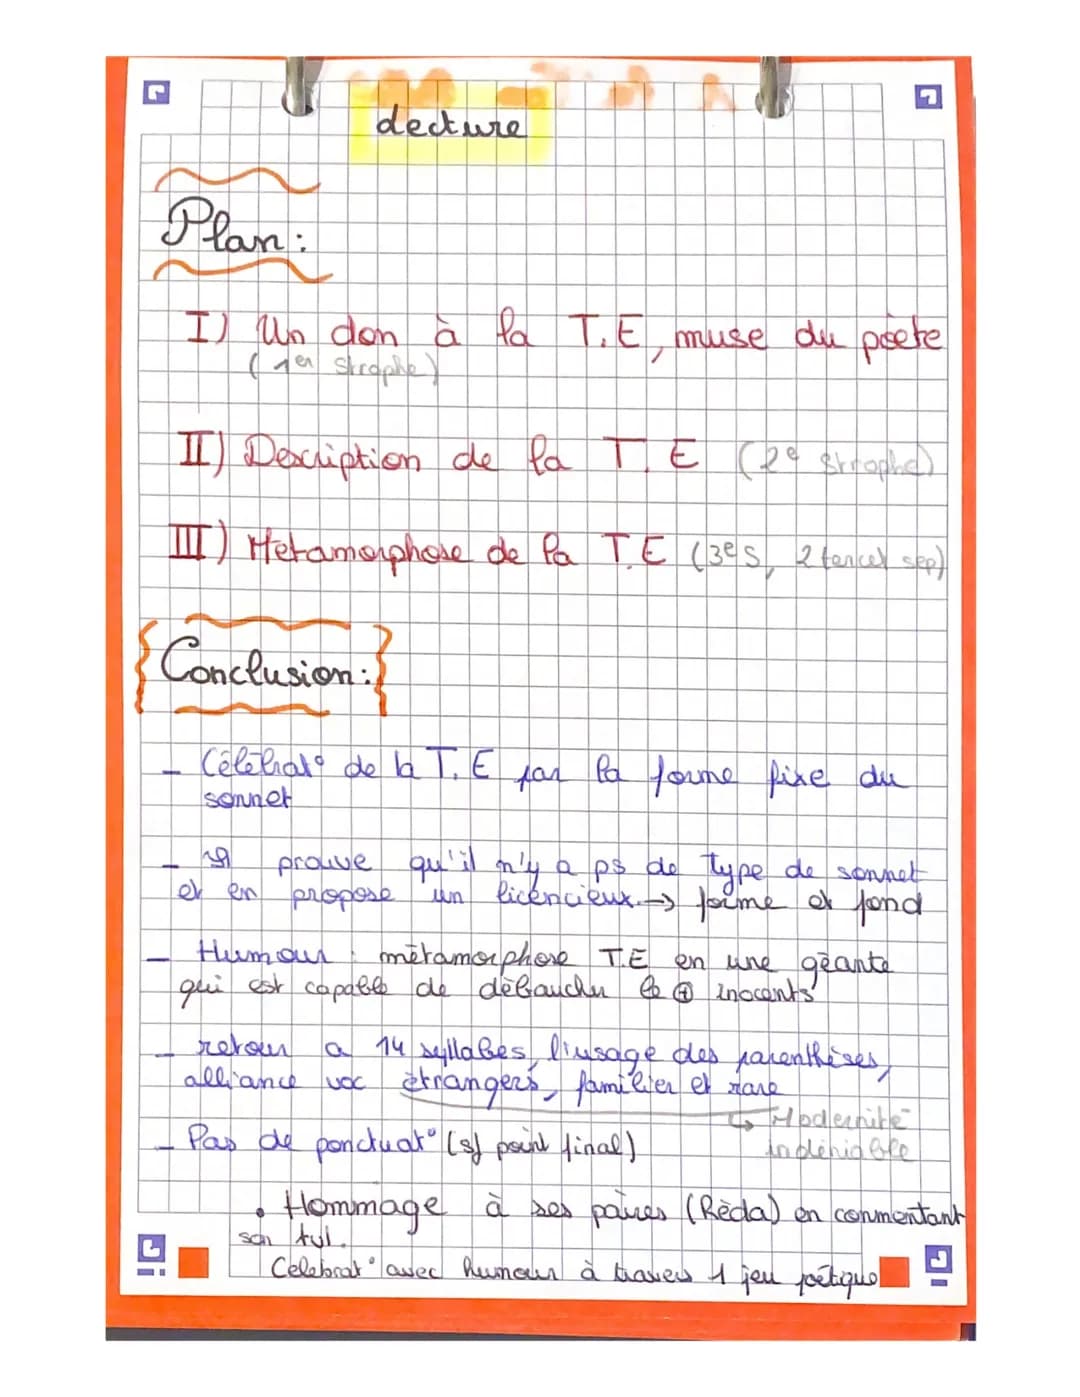 Lecture
Plan :
I) Un don à la T.E, muse du poète
(1er strophe)
II) Description de la T.E (2e strophe)
III) Métamorphose de la T.E (3e s, 2 tercet sep)
Conclusion :
- Célébrat° de la T.E par la forme fixe du
sonnet
- Il prouve qu'il n'y a ps de type de sonnet
et en propose un licencieux. → forme et fond
- Humour : métamorphose T.E en une géante
qui est capable de débaucher le ⊕ inocents
- retour a 14 syllabes, l'usage des parenthèses,
alliance voc étrangers, familier et rare
↳ Modernité
indéniable
- Pas de ponctuat° (s/ point final)
• Hommage à ses paires (Réda) en commentant
son
Celebrat° avec humour à travers 1 jeu poétique